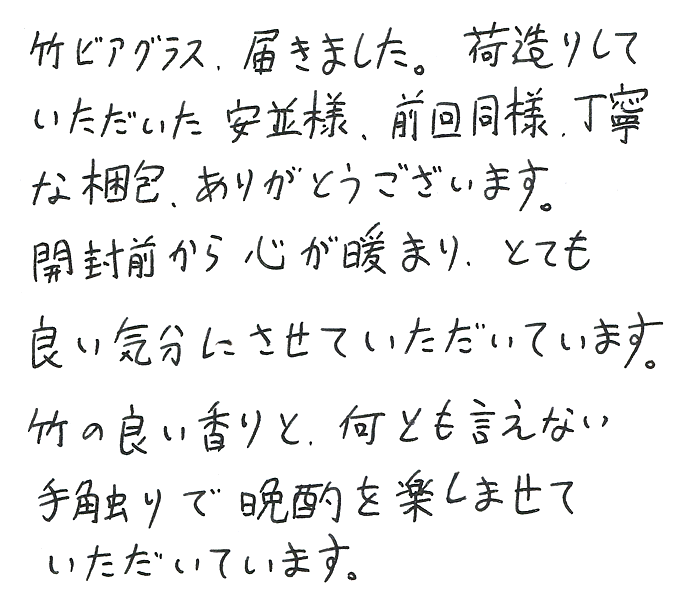 竹ビアグラス、届きました。荷造りして
いただいた安並様、前回同様、丁寧
な梱包、ありがとうございます。
開封前から心が暖まり、とても
良い気分にさせていただいています。
竹の良い香りと、何とも言えない
手触りで晩酌を楽しませて
いただいています。